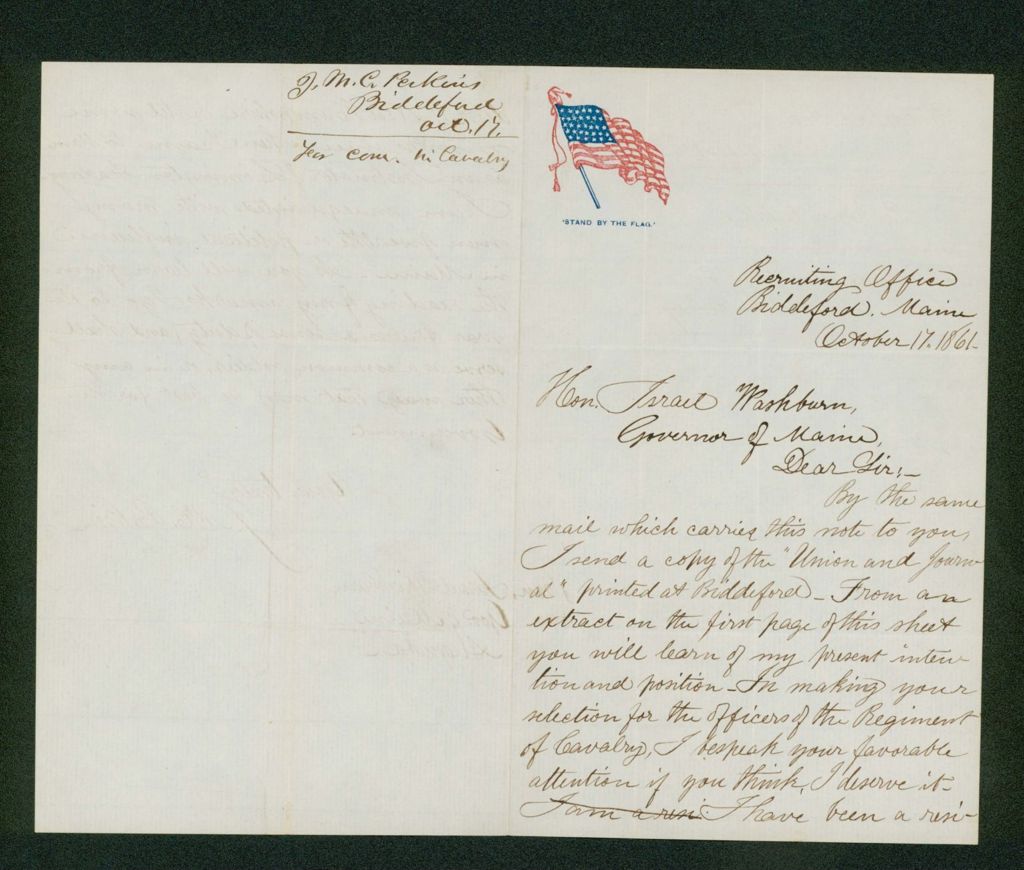 J. M. C. Perkins
Biddeford
Oct. 17.
For com. in Cavalry
"STAND BY THE FLAG."
Recruiting Office
Biddeford. Maine
October 17. 1861.
Hon. Israel Washburn,
Governor of Maine,
Dear Sir:—
By the same
mail which carries this note to you,
I send a copy of the "Union and Journ-
al" printed at Biddeford — From an
extract on the first page of this sheet
you will learn of my present inten-
tion and position — In making your
selection for the officers of the Regiment
of Cavalry, I bespeak your favorable
attention if you think, I deserve it —
I am a resi. I have been a resi-